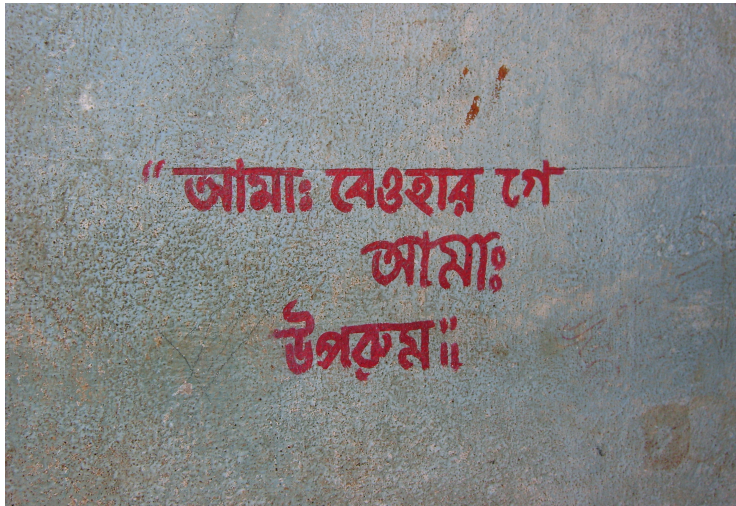 "আমাঃ বেওহার গে
আমাঃ
উপরুম"